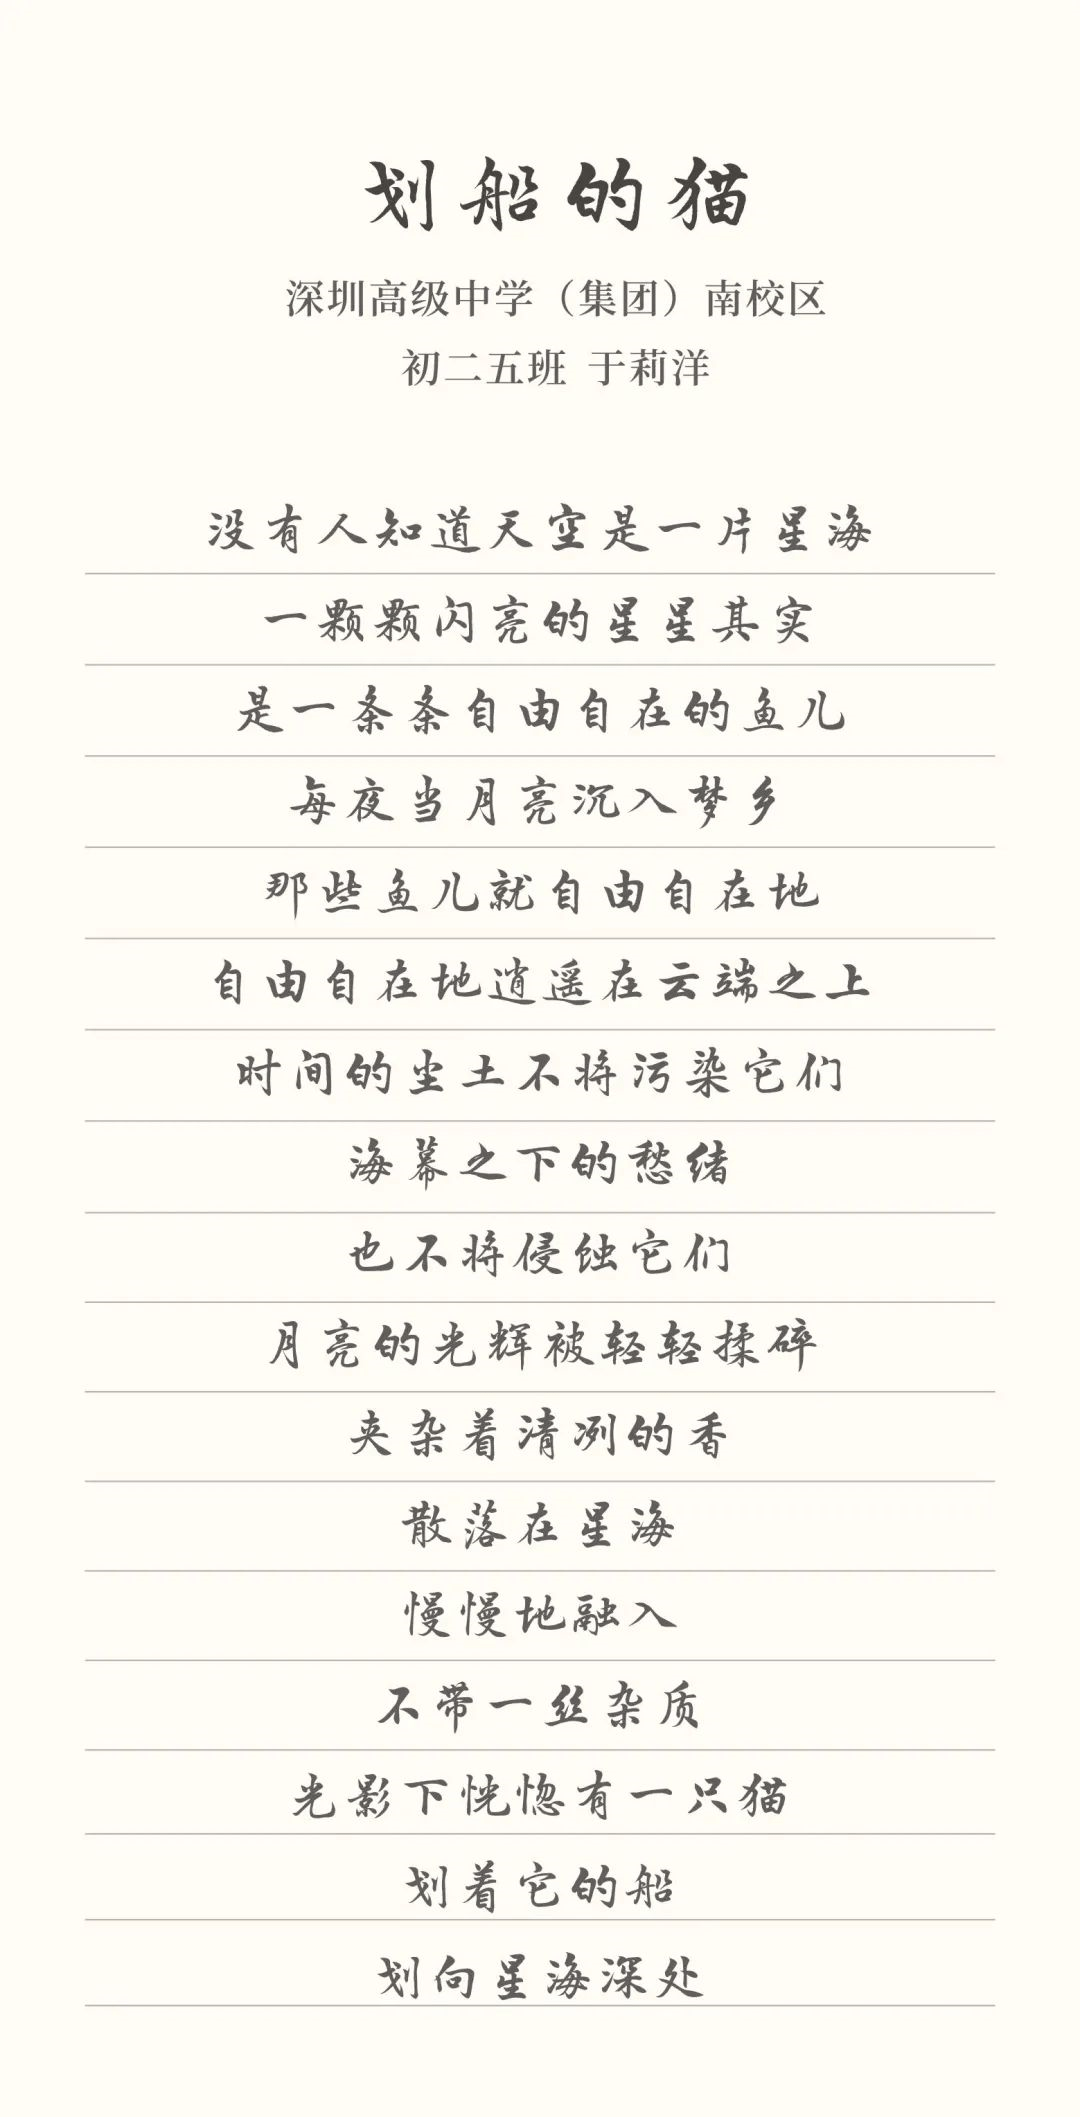 划船的猫
深圳高级中学（集团）南校区
初二五班 于莉洋
没有人知道天空是一片星海
一颗颗闪亮的星星其实
是一条条自由自在的鱼儿
每夜当月亮沉入梦乡
那些鱼儿就自由自在地
自由自在地逍遥在云端之上
时间的尘土不将污染它们
海幕之下的愁绪
也不将侵蚀它们
月亮的光辉被轻轻揉碎
夹杂着清冽的香
散落在星海
慢慢地融入
不带一丝杂质
光影下恍惚有一只猫
划着它的船
划向星海深处